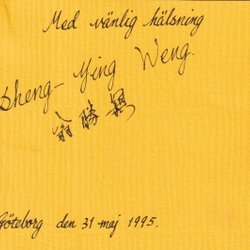 Med vänlig hälsning
Sheng-Ying Weng.
翁勝
Göteborg den 31 maj 1995.